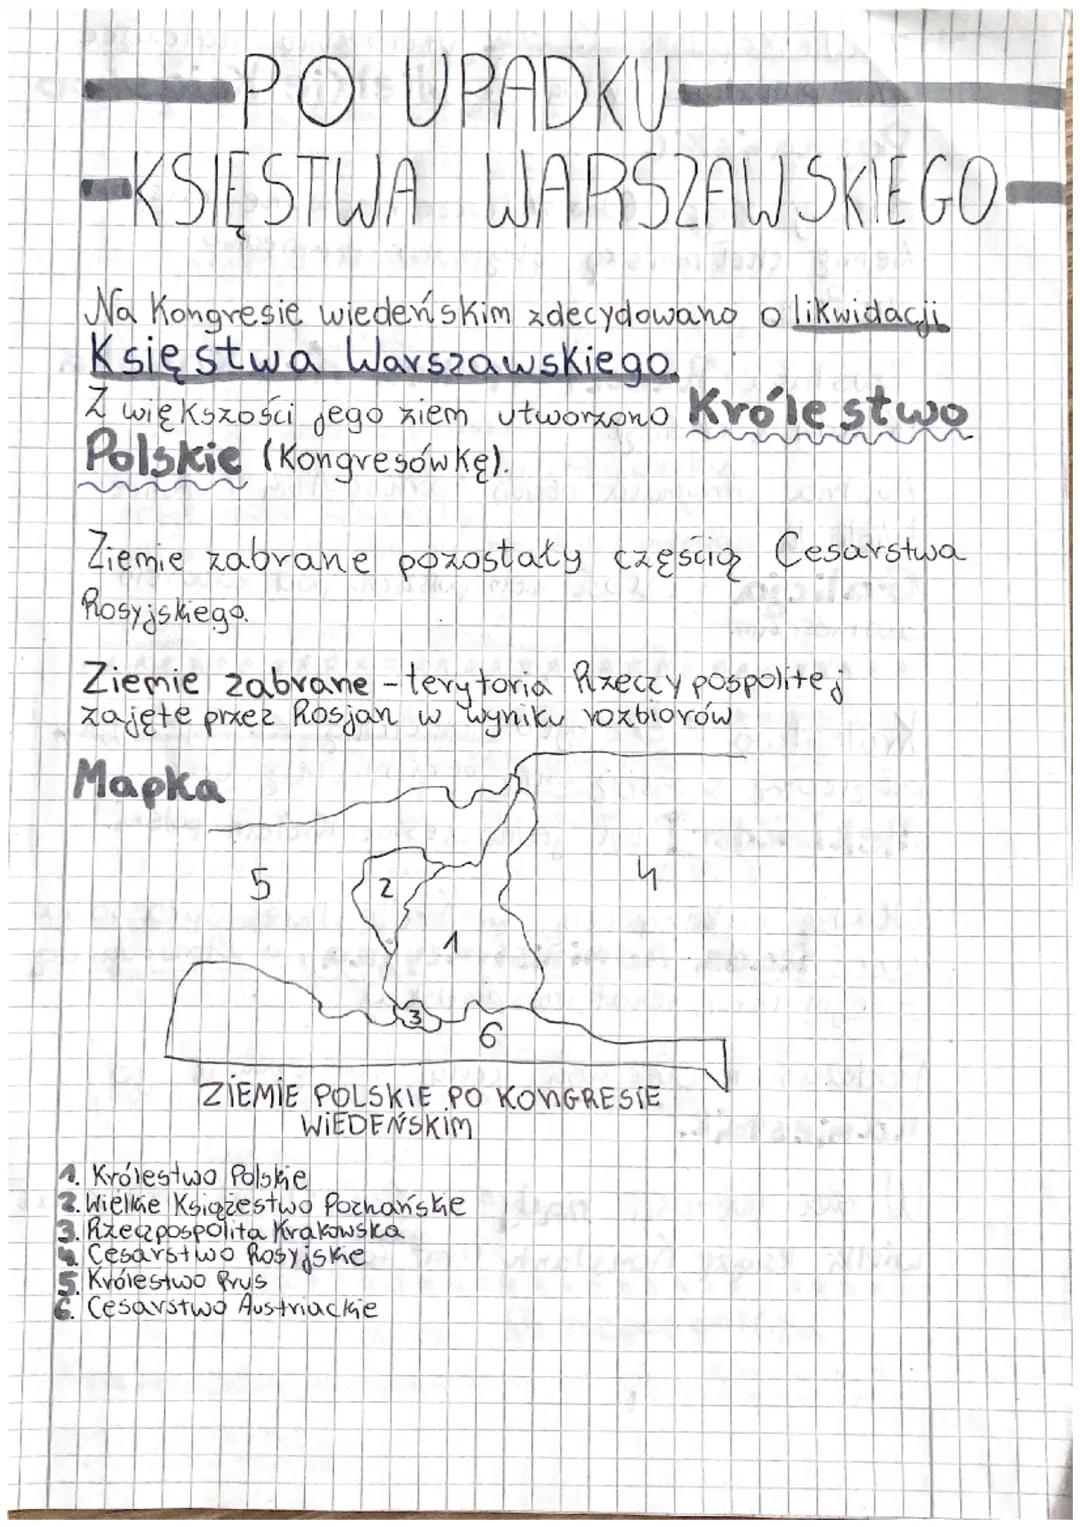 PO UPADKU
KSIĘSTWA WARSZAWSKIEGO
Na Kongresie wiedeńskim zdecydowano o likwidacji
Księstwa Warszawskiego.
Z większości jego ziem utworzono Królestwo
Polskie (Kongresówkę).
Ziemie zabrane pozostały częścią Cesarstwa
Rosyjskiego.
Ziemie zabrane - terytoria Rzeczypospolitej
zajęte przez Rosjan w wyniku rozbiorów
Mapka
5
2
4
1
3
6
ZIEMIE POLSKIE PO KONGRESIE
WIEDEŃSKIM
1. Królestwo Polskie
2. Wielkie Księżestwo Poznańskie
3. Rzeczpospolita Krakowska
4. Cesarstwo Rosyjskie
5. Królestwo Prus
6. Cesarstwo Austriackie